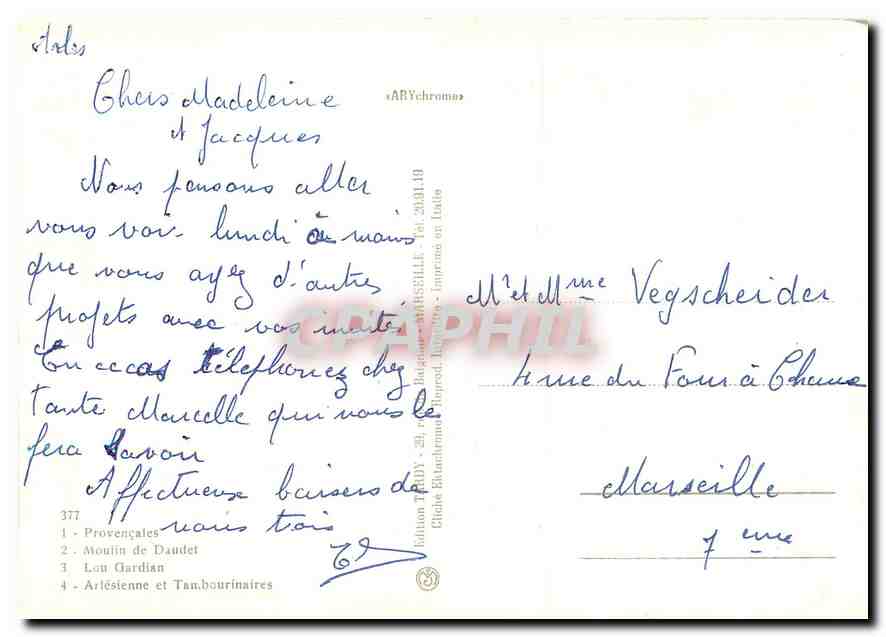 Arles
Chers Madeleine
et Jacques
Nous pensons aller
vous voir lundi à moins
que vous ayez d'autres
projets avec vos invités.
En ce cas téléphonez chez
tante Marcelle qui nous le
fera savoir
Affectueux baisers de
nous trois
«ARYchrome»
Edition TARDY - 29, rue Baignoir - MARSEILLE - Tél. 20.91.19
Cliché Ektachrome - Reprod. Interdite - Imprimé en Italie
Mr et Mme Vegscheider
4 rue du Four à Chaux
Marseille
7eme
377
1 - Provençales
2 - Moulin de Daudet
3 Lou Gardian
4 - Arlésienne et Tambourinaires
CPAPHIL